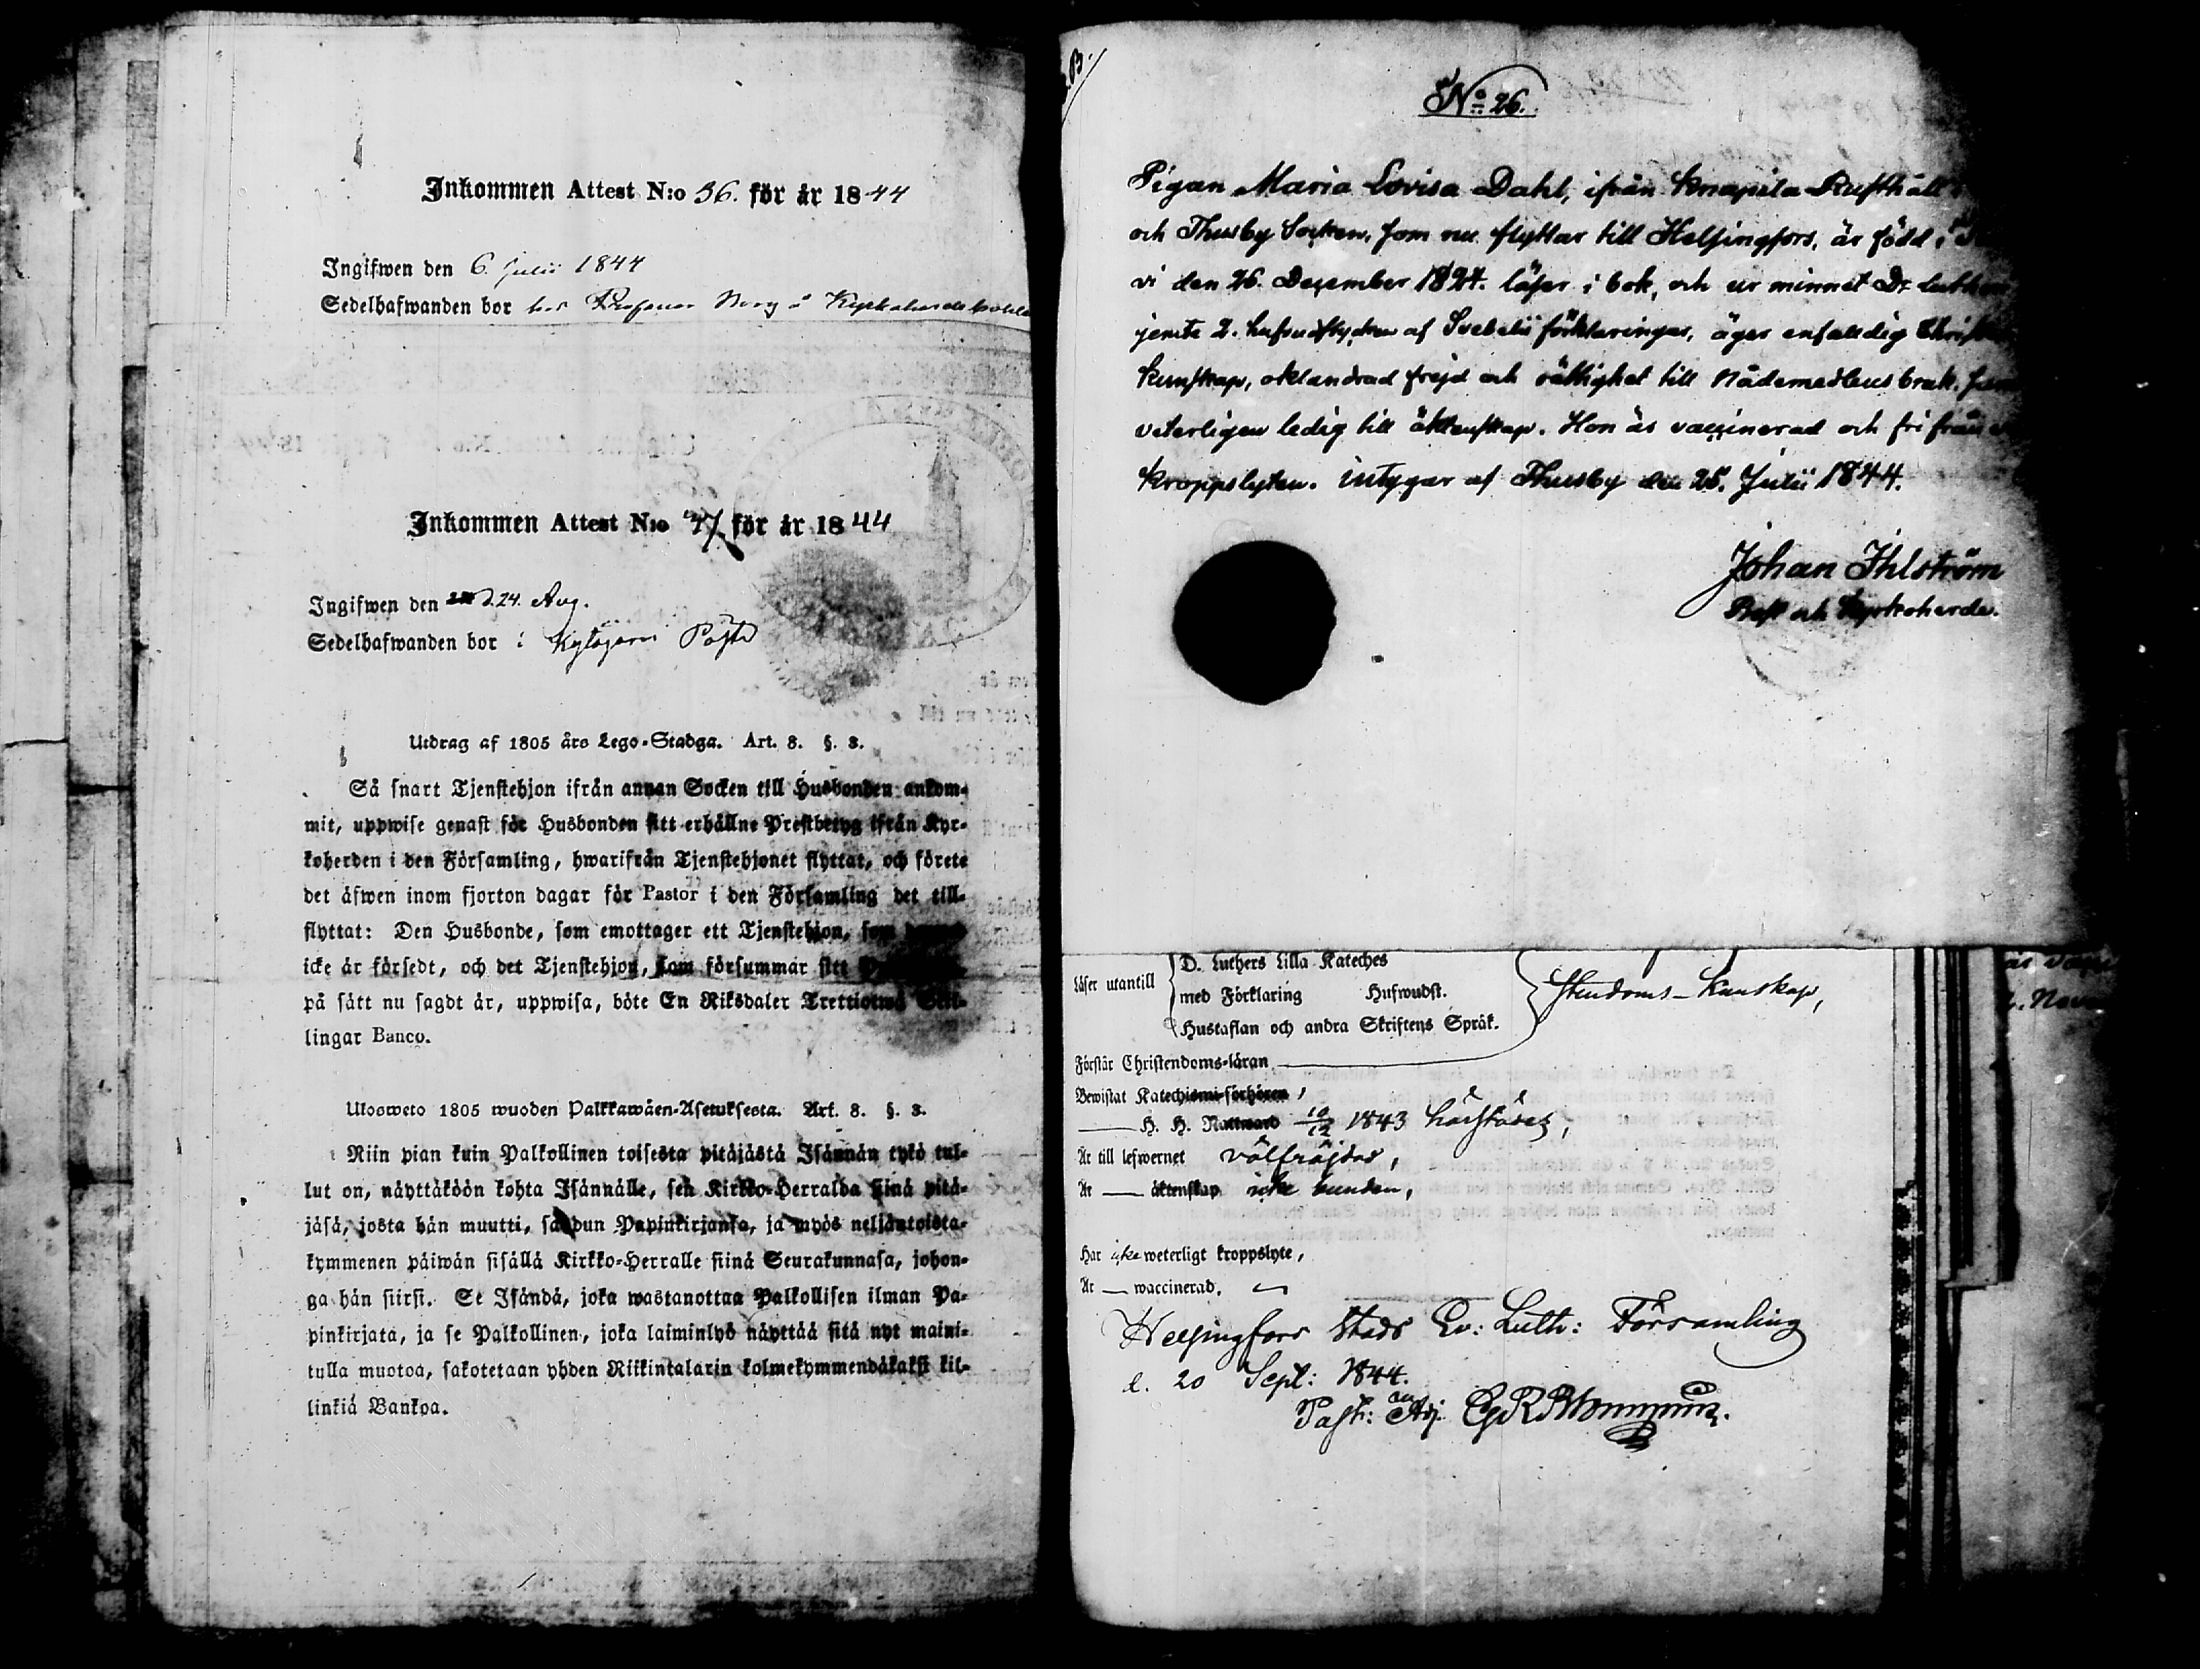 Inkommen Attest N:o 36. för år 1844
Ingifwen den 6. Julii 1844
Sedelhafwanden bor hos Professor
Inkommen Attest N:o 47 för år 1844
Ingifwen den d. 24. Aug.
Sedelhafwanden bor i
Utdrag af 1805 års Lego-Stadga. Art. 8. §. 3.
Så snart Tjenstehjon ifrån annan Socken till Husbonden ankom-
mit, uppwise genast för Husbonden sitt erhållne Prestbetyg ifrån Kyr-
koherden i den Församling, hwarifrån Tjenstehjonet flyttat, och förete
det äfwen inom fjorton dagar för Pastor i den Församling det till-
flyttat: Den Husbonde, som emottager ett Tjenstehjon, som
icke är försedt, och det Tjenstehjon, som försummar sitt
på sätt nu sagdt är, uppwisa, böte En Riksdaler Trettiotwå Skil-
lingar Banco.
Ulosweto 1805 wuoden Palkkawäen-Asetuksesta. Art. 8. §. 3.
Niin pian kuin Palkollinen toisesta pitäjästä Isännän tykö tul-
lut on, näyttäköön kohta Isännälle, sen Kirkko-Herralda siinä pitä-
jäsä, josta hän muutti, saadun Papinkirjansa, ja myös neljäntoista-
kymmenen päiwän sisällä Kirkko-Herralle siinä Seurakunnasa, johon-
ga hän siirsi. Se Isändä, joka wastanottaa Palkollisen ilman Pa-
pinkirjata, ja se Palkollinen, joka laiminlyö näyttää sitä nyt maini-
tulla muotoa, sakotetaan yhden Riikintalarin kolmekymmendäkaksi kil-
linkiä Bankoa.
No 26.
Pigan Maria Lovisa Dahl, ifrån Knapila Rusthåll
och Thusby Socken, som nu flyttar till Helsingfors, är född i
vi den 26. December 1824. läser i bok, och ur minnet Dr
jemte 2. hufvudstycken af Svebelii förklaringar, äger enfaldig
kunskap, oklandrad frejd och rättighet till Nådemedlens bruk,
veterligen ledig till äktenskap. Hon är vaccinerad och fri från
kroppslyten. intygar af Thusby den 25. Julii 1844.
Johan Ihlström
Prost och Kyrkoherde.
Läser utantill D. Luthers Lilla Kateches
med Förklaring Hufwudst.
Hustaflan och andra Skriftens Språk.
stendoms-kunskap,
Förstår Christendoms-läran
Bewistat Katechismi-förhören
H. H. Nattward 10/12 1843
Är till lefwernet välfräjdad,
Är — äktenskap icke bunden,
Har icke weterligt kroppslyte,
Är — waccinerad.
Helsingfors Stads Ev: Luth: Församling
d. 20 Sept: 1844.
Past: Adj.